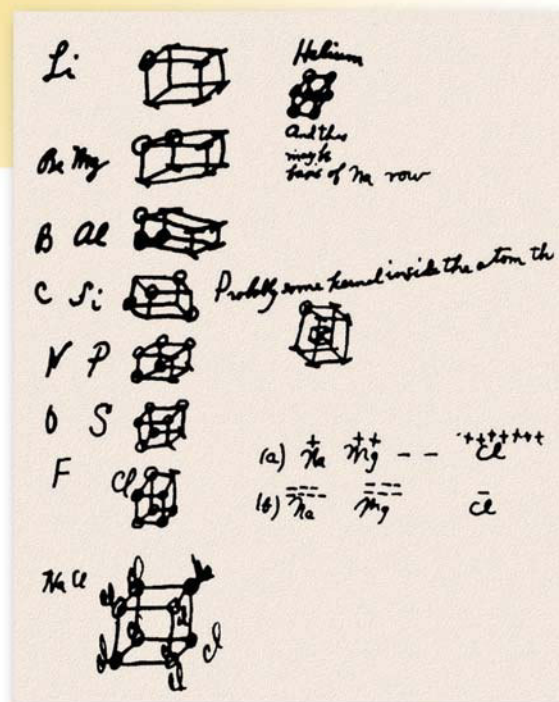 Li
Helium
And this
might
basis of Na row
Be Mg
B Al
C Si
Probably some kernel inside the atom th
N P
O S
F Cl
(a) Na + Mg ++ - - Cl +++++++
(b) Na Mg Cl -
Na Cl
Cl
Cl